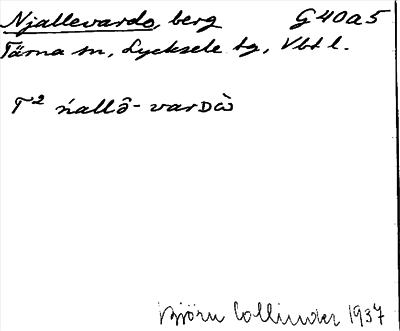 Njallevardo, berg G40a5
Tärna sn, Lycksele tg, Vbt l.
T² ńallō̂-varᴅὼ
Björn Collinder 1937